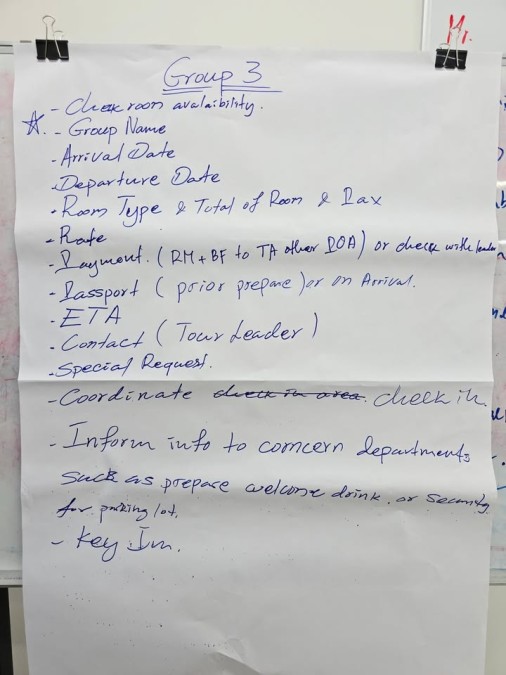 Mr.
Group 3
- Check room avalaibility.
☆ - Group Name
- Arrival Date
- Departure Date
- Room Type & Total of Room & Pax
- Rate
- Payment. (RM + BF to TA other POA) or check with leader
- Passport (prior prepare) or on Arrival.
- ETA
- Contact (Tour Leader)
- Special Request.
- Coordinate check in area. check in.
- Inform info to comcern departments
such as prepare welcome drink. or Security
for parking lot.
- Key In.